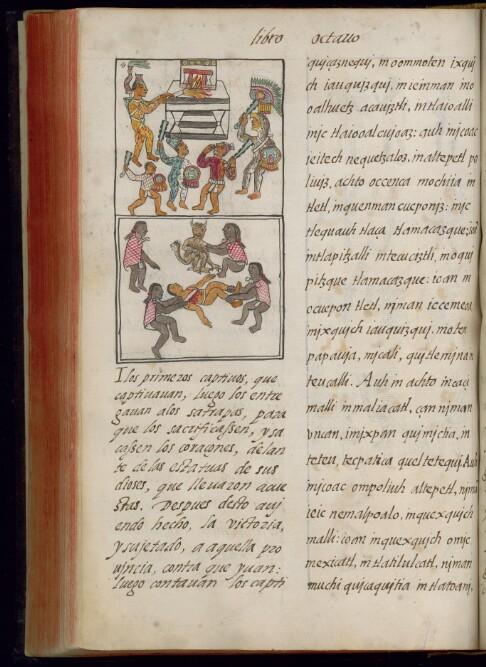 libro octauo
I los primeros captiuos, que
captiuauan, luego los entre
gauan alos satrapas, para
que los sacrificassen, y sa
cassen los coraçones, delan
te de las estatuas de sus
dioses, que lleuazon acue
stas. Despues desto aui
endo hecho, la victoria,
y sujetado, a aquella pro
uincia, contra que yuan:
luego contauan los capti
qujcaznequj, moommoten ixquj
ch iauqujzquj, mieinman ino
oalhuetz acaujztli, intlaioalli
injc tlaiooalcujoaz: auh injcoac
ieitech nequetzaloz, in altepetl po
liujz, achto occenca mochiia in
tletl, inquenman cueponjz: injc
tlequauh tlaca tlamacazque;
intlapitzalli intecuciztli, moquj
pitzque tlamacazque: ioan in
ocuepon tletl, njman iceemeoa
injxqujch iauqujzquj. moten
papauja, injcali, qujtleminan
teucalli. Auh in achto incaçi
malli inmaliacatl, çan njman
vncan, imixpan qujmicha, in
teteu, tecpatica queltetequj. Auh
injcoac ompoliuh altepetl, njma
ieic nemalpoalo, inquexqujch
malli: ioan inquexqujch omjc
mexicatl, intlatilulcatl, njman
muchi qujcaqujtia intlatoanj,